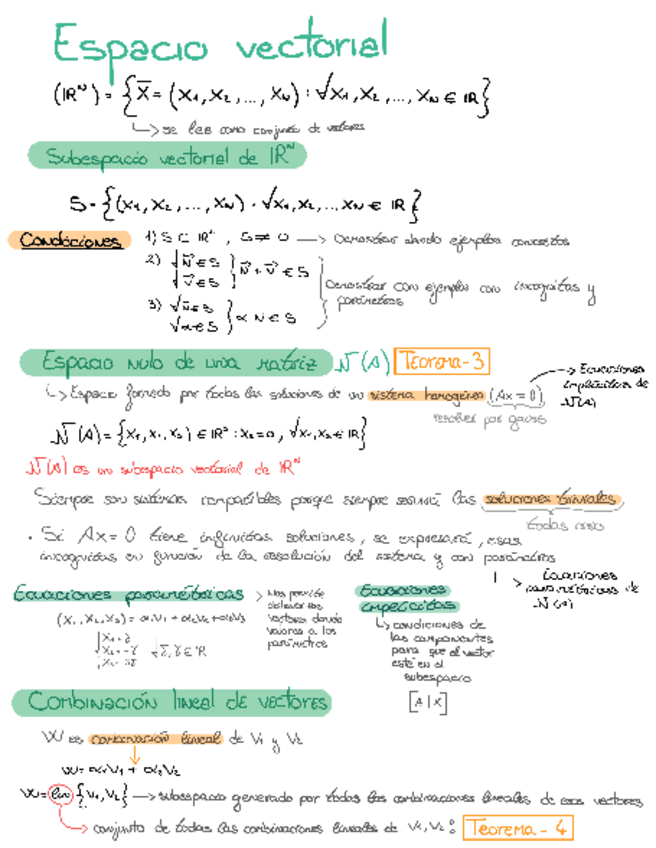 Espacio vectorial
(IRᴺ) = { X̄ = (X₁, X₂, ..., Xɴ) : √X₁, X₂, ..., Xɴ ∈ IR }
↳ se lee como conjunto de valores
Subespacio vectorial de IRᴺ
S = { (X₁, X₂, ..., Xɴ) . √X₁, X₂, ... Xɴ ∈ IR }
Condiciones 1) S ⊂ IRᴺ , S ≠ 0 → Demostrar dando ejemplos concretos
2) √u⃗ ∈ S
√v⃗ ∈ S } u⃗ + v⃗ ∈ S
Demostrar con ejemplos con incognitas y
parámetros
3) √u ∈ S
√α ∈ S } α u ∈ S
Espacio nulo de una matriz N(A) Teorema-3
↳ Espacio formado por todas las soluciones de un sistema homogéneo (Ax = 0)
→ Ecuaciones
implícitas de
N(A)
resolver por gauss
N(A) = { X₁, X₂, X₃) ∈ IR³ : X₂ = 0 , √X₁, X₃ ∈ IR }
N(A) es un subespacio vectorial de IRᴺ
Siempre son sistemas compatibles porque siempre tendrá las soluciones triviales
todas cero
. Si Ax = 0 tiene infinitas soluciones, se expresará, esas
incognitas en función de la resolución del sistema y con parámetros
→ Ecuaciones
paramétricas de
N(A)
Ecuaciones paramétricas
→ Nos permite
obtener los
vectores dando
valores a los
parámetros
(X₁, X₂, X₃) = α₁V₁ + α₂V₂ + α₃V₃
Ecuaciones
implícitas
↳ condiciones de
las componentes
para que el vector
esté en el
subespacio
[A | X]
Combinación lineal de vectores
W es combinación lineal de V₁ y V₂
W = α₁V₁ + α₂V₂
W = lin { V₁, V₂ } → subespacio generado por todas las combinaciones lineales de esos vectores
→ conjunto de todas las combinaciones lineales de V₁, V₂ : Teorema - 4